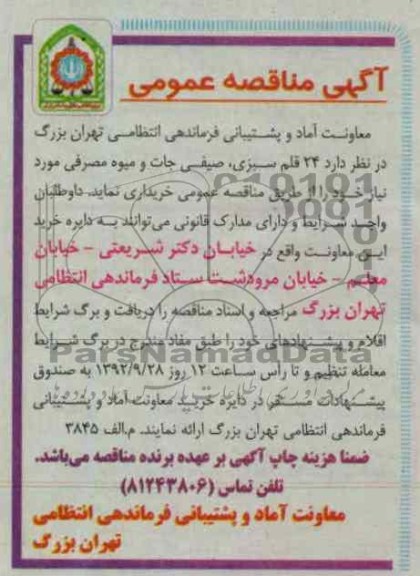 آگهی مناقصه عمومی
معاونت آماد و پشتیبانی فرماندهی انتظامی تهران بزرگ
در نظر دارد ۲۴ قلم سبزی، صیفی جات و میوه مصرفی مورد
نیاز خود را از طریق مناقصه عمومی خریداری نماید. داوطلبان
واجد شرایط و دارای مدارک قانونی می‌توانند به دایره خرید
این معاونت واقع در خیابان دکتر شریعتی - خیابان
معلم - خیابان مرودشت ستاد فرماندهی انتظامی
تهران بزرگ مراجعه و اسناد مناقصه را دریافت و برگ شرایط
اقلام و پیشنهادهای خود را طبق مفاد مندرج در برگ شرایط
معامله تنظیم و تا رأس ساعت ۱۲ روز ۱۳۹۲/۹/۲۸ به صندوق
پیشنهادات مستقر در دایره خرید معاونت آماد و پشتیبانی
فرماندهی انتظامی تهران بزرگ ارائه نمایند. م.الف ۳۸۴۵
ضمنا هزینه چاپ آگهی بر عهده برنده مناقصه می‌باشد.
تلفن تماس (۸۱۲۴۳۸۰۶)
معاونت آماد و پشتیبانی فرماندهی انتظامی
تهران بزرگ
ParsNamadData